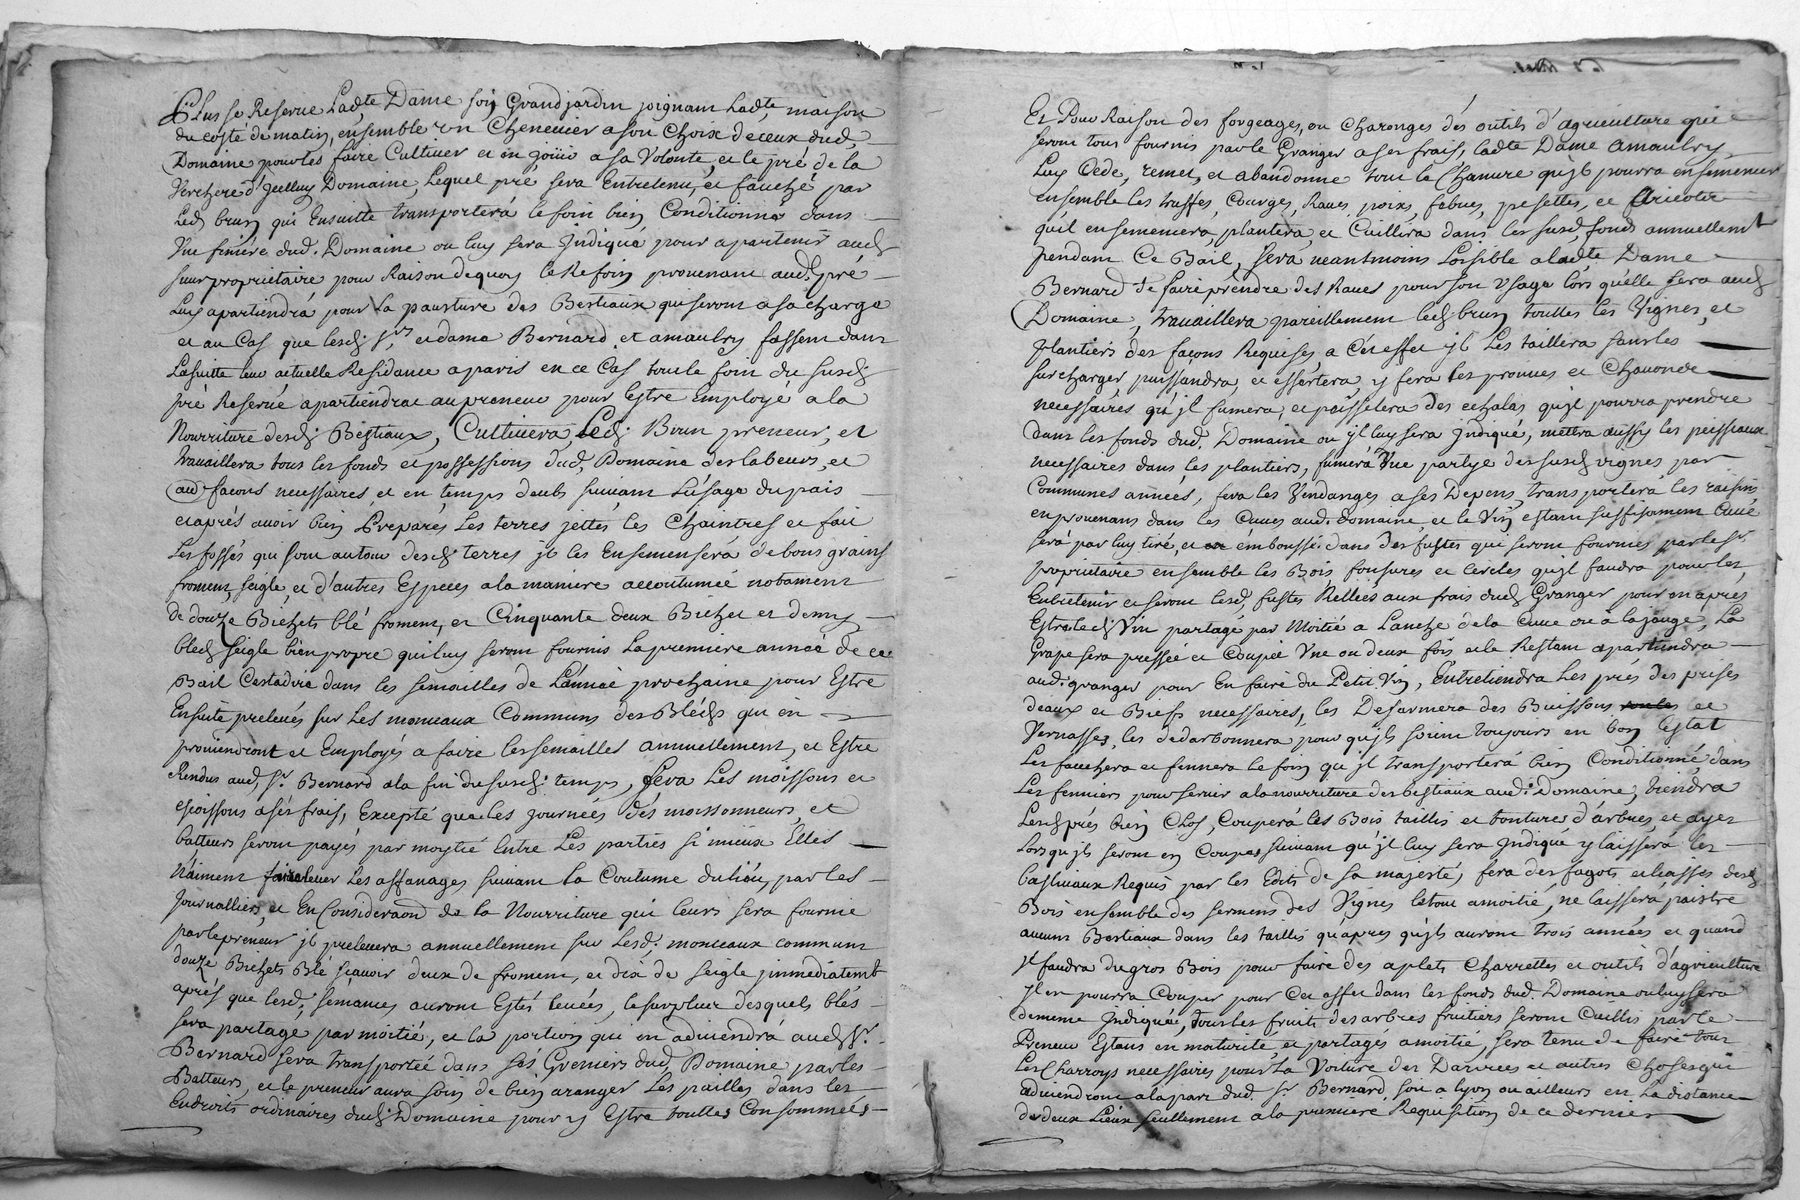 Plus se Reserve Ladte Dame son Grand jardin joignant Ladte maison
du costé de matin, ensemble un Chenevier a son Choix de ceux dud.
Domaine pour les faire Cultiver et en joüir a sa Volonté, et le pré de la
Verchere d'Jcelluy Domaine, Lequel pré sera Entretenu, et fauché par
Led brun qui Ensuitte transporterá le foin bien Conditionné dans
Une feniere dud. Domaine ou luy sera Jndiqué pour apartenir aud
sieur proprietaire pour Raison dequoy le Refoin provenant aud. pré
Luy apartiendrá pour la pasture des Bestiaux qui seront a sa charge
et au Cas que lesd Srs et dame Bernard et amaulry fassent dans
La suitte leur actuelle Residance a paris en ce Cas tout le foin du susd
pré Reservé apartiendra au preneur pour Estre Employé a la
Nourriture desd Bestiaux, Cultivera Led Brun preneur, et
travaillera tous les fonds et possessions dud. Domaine des labeurs, et
façons necessaires et en temps deubs suivant L'usage du païs
et aprés avoir bien Preparés Les terres jettés les Chaintres et fait
Les fossés qui sont autour desd terres jl les Ensemenserá de bons grains
froment, seigle, et d'autres Especes a la maniere accoutumée notament
de douze Bichets blé froment, et Cinquante deux Bichet et demy
bled seigle bien propre qui luy seront fournis La premiere année de ce
Bail Cestadire dans les semailles de L'année prochaine pour Estre
Ensuite prelevés sur Les monceaux Communs des Bléds qui en
proviendront et Employés a faire les semailles annuellement, et Estre
Rendus aud. Sr. Bernard a la fin du susd temps, fera Les moissons et
a sés frais, Excepté que les journées dés moissonneurs et
batteurs seront payés par moytié Entre Lés parties si mieux Elles
N'aiment Les affanages suivant la Coutume du liéu, par les
Journalliers, et En Consideraon de la Nourriture qui leurs sera fournie
par le preneur jl prelevera annuellement sur Lesd. monceaux communs
douze Bichets Blé sçavoir deux de froment, et dix de seigle jmmediatemt
aprés que lesd. sémances auront Estés levées, le surplus desquels blés
sera partagé par moitié, et la portion qui en adviendrá aud Sr.
Bernard sera transportée dans sés Greniers dud. Domaine par les
Batteurs, et le preneur aura soin de bien aranger Les pailles dans les
Endroits ordinaires dud Domaine pour y Estre touttes Consommées
Et Pour Raison des forgeages, ou Charonges dés outils d'agriculture qui
seront tous fournis par le Granger a ses frais, ladte Dame amaulry
Luy Cede, remet, et abandonne tout le Chanvre qu'jl pourra ensemencer
ensemble les truffes, Courges, Raves, poix, febves, pesettes, et
quil ensemencera, plantera, et Cuillira dans les susd. fonds annuellemt
pendant Ce Bail, sera neantmoins Loisible a ladte Dame
Bernard de faire préndre des Raves pour son Usage lors qu'elle sera aud
Domaine, travaillera pareillement led brun touttes les Vignes, et
plantiers des façons Requises a Cét effet jl Les taillera sans les
surcharger puissandra, et essertera, y fera les provues et
necessaires qu'jl fumera, et païsselera des echalas qu'jl pourra prendre
dans les fonds dud. Domaine ou jl luy sera Jndiqué, mettra aussy les peisseaux
necessaires dans les plantiers, fumerá Vne partye des susd vignes par
Communes années, fera les Vendanges a ses Depens, transporterá les raisins
en provenans dans les Cuves aud. domaine, et le Vin estant suffisament Cuvé
será par luy tiré, et emboussé dans des fustes qui seront fournies par le Sr.
proprietaire ensemble les Bois, fonsures et Cercles qu'jl faudra pour les
Entretenir et seront lesd. fustes Relliées aux frais dud Granger pour en aprés
Estre led Vin partagé par Moitié a L'anche de la Cuve ou à la jauge, La
Grape sera pressée et Coupée Vne ou deux fois et le Restant apartiendra
aud. granger pour En faire du Petit Vin, Entretiendra Les prés des prises
deaux et Biefs necessaires, les Desarmera des Buissons et
Vernasses, les dedarbonnera pour qu'jls soient toujours en bon Estat
Les fauchera et fennera le foin qu'jl transporterá bien Conditionné dans
Les fenniers pour servir a la nourriture des bestiaux aud. Domaine, tiendra
Lesd prés bien Clos, Coupera les Bois taillis et tontures d'arbres, et
Lorsqu'jls seront en Coupes suivant qu'jl luy sera Jndiqué y laisserá les
balivaux Requis par les Edits de sa majesté, fera des fagots et liasses desd
Bois ensemble des sermens des Vignes le tout a moitié, ne laisserá paistre
aucuns Bestiaux dans les taillis qu'apres qu'jls auront trois années et quand
jl faudra du gros Bois pour faire des aplets Charrettes et outils d'agriculture
jl en pourra Couper pour Cet effet dans les fonds dud. Domaine ou luy sera
de meme Jndiquée, tous les fruits des arbres fruitiers seront Cuillis par le
Preneur Estans en maturité, et partagés a moitié, sera tenu de faire tous
Les Charroys necessaires pour La Voiture des Danrées et autres Choses qui
adviendront a la part dud. Sr. Bernard, soit a lyon ou ailleurs en La distance
de deux Lieux seullement a la premiere Requisition de ce dernier